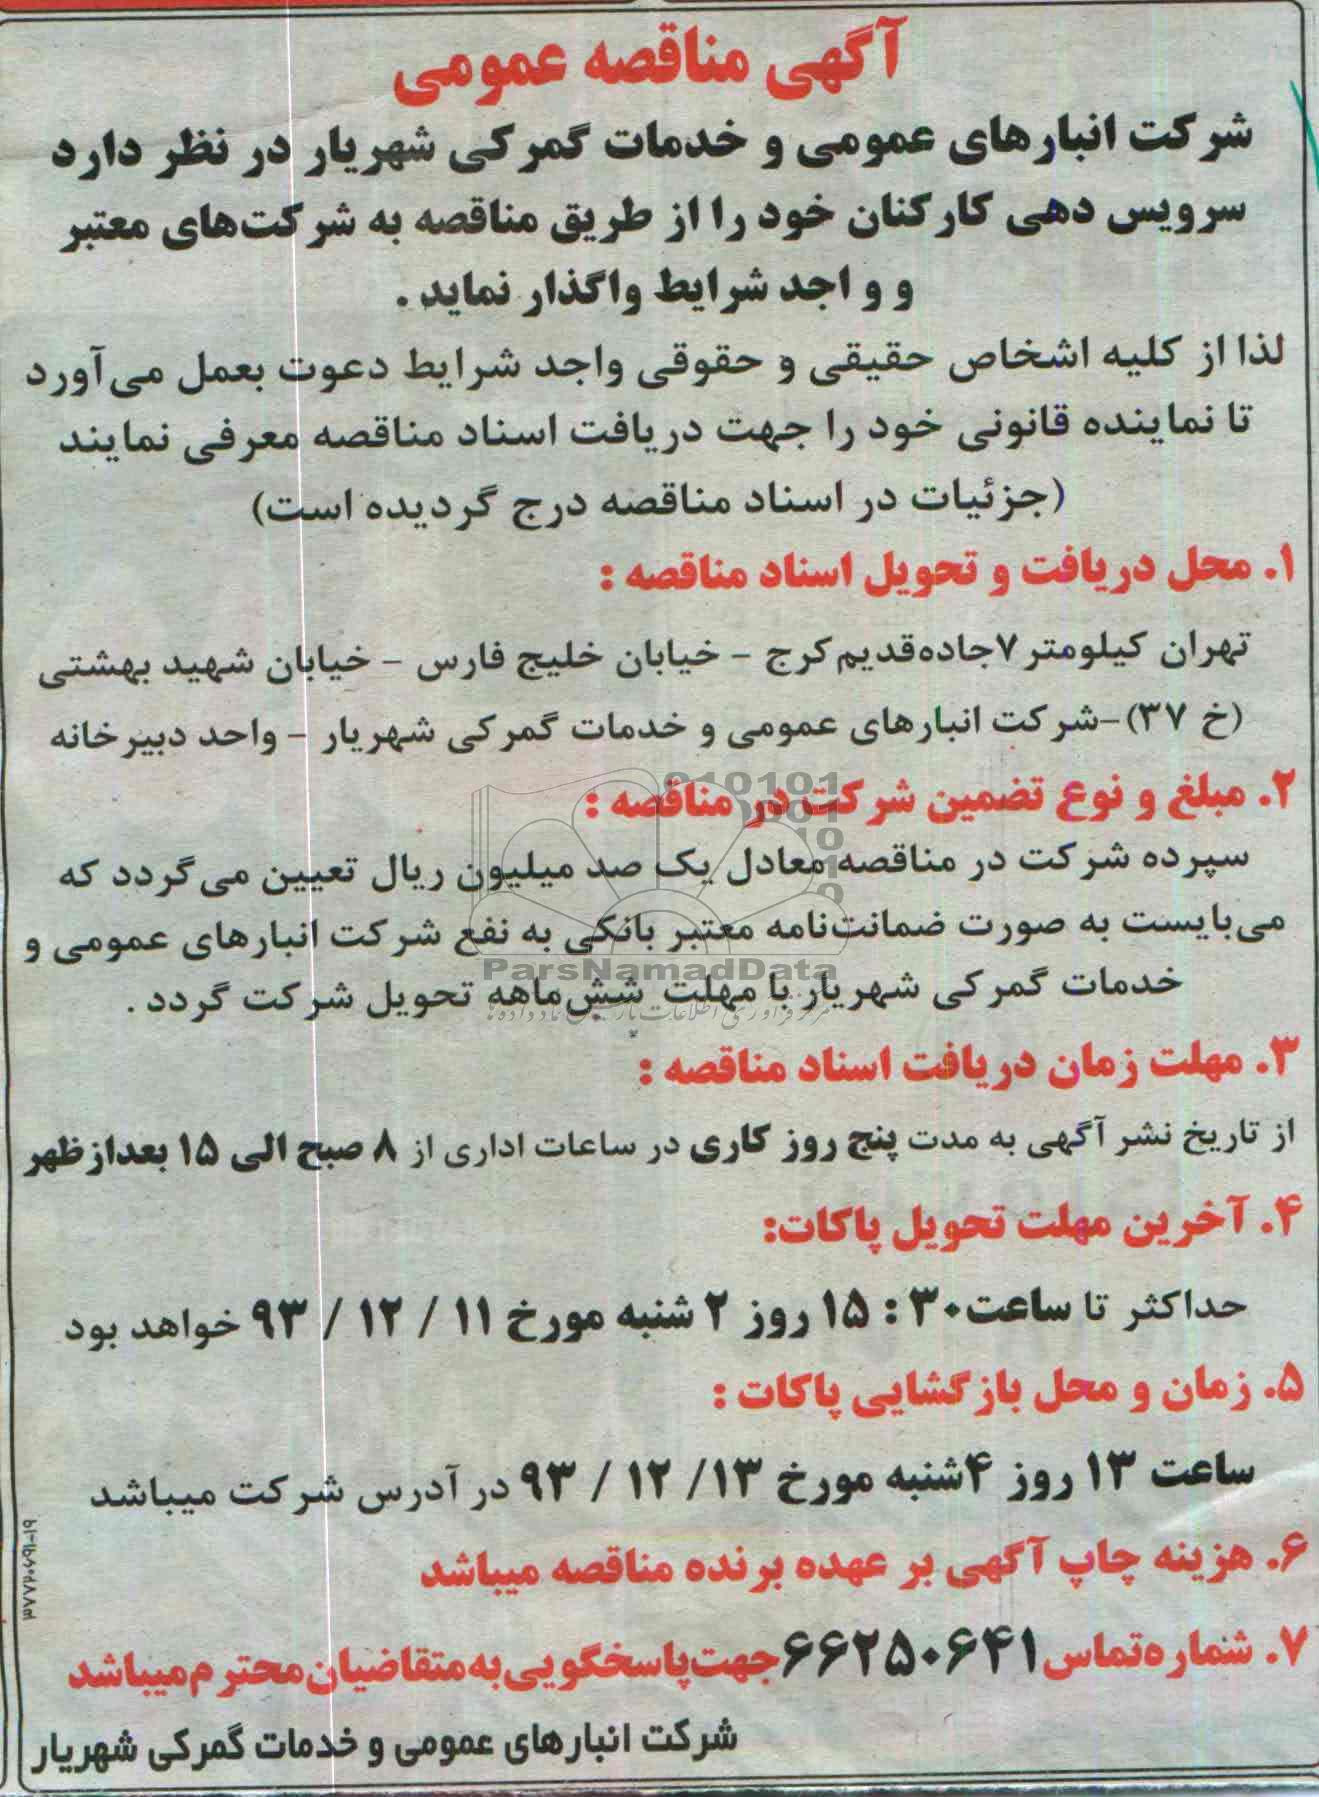 آگهی مناقصه عمومی
شرکت انبارهای عمومی و خدمات گمرکی شهریار در نظر دارد
سرویس دهی کارکنان خود را از طریق مناقصه به شرکت‌های معتبر
و و اجد شرایط واگذار نماید .
لذا از کلیه اشخاص حقیقی و حقوقی واجد شرایط دعوت بعمل می‌آورد
تا نماینده قانونی خود را جهت دریافت اسناد مناقصه معرفی نمایند
(جزئیات در اسناد مناقصه درج گردیده است)
۱. محل دریافت و تحویل اسناد مناقصه :
تهران کیلومتر ۷جاده‌قدیم کرج - خیابان خلیج فارس - خیابان شهید بهشتی
(خ ۳۷)-شرکت انبارهای عمومی و خدمات گمرکی شهریار - واحد دبیرخانه
۲. مبلغ و نوع تضمین شرکت در مناقصه :
سپرده شرکت در مناقصه معادل یک صد میلیون ریال تعیین می‌گردد که
می‌بایست به صورت ضمانت‌نامه معتبر بانکی به نفع شرکت انبارهای عمومی و
خدمات گمرکی شهریار با مهلت شش‌ماهه تحویل شرکت گردد .
ParsNamadData
۳. مهلت زمان دریافت اسناد مناقصه :
از تاریخ نشر آگهی به مدت پنج روز کاری در ساعات اداری از ۸ صبح الی ۱۵ بعدازظهر
۴. آخرین مهلت تحویل پاکات:
حداکثر تا ساعت۳۰ : ۱۵ روز ۲ شنبه مورخ ۱۱ / ۱۲ / ۹۳ خواهد بود
۵. زمان و محل بازگشایی پاکات :
ساعت ۱۳ روز ۴شنبه مورخ ۱۳/ ۱۲ / ۹۳ در آدرس شرکت میباشد
۶. هزینه چاپ آگهی بر عهده برنده مناقصه میباشد
۷. شماره‌تماس ۶۶۲۵۰۶۴۱ جهت‌پاسخگویی‌به‌متقاضیان‌محترم‌میباشد
شرکت انبارهای عمومی و خدمات گمرکی شهریار